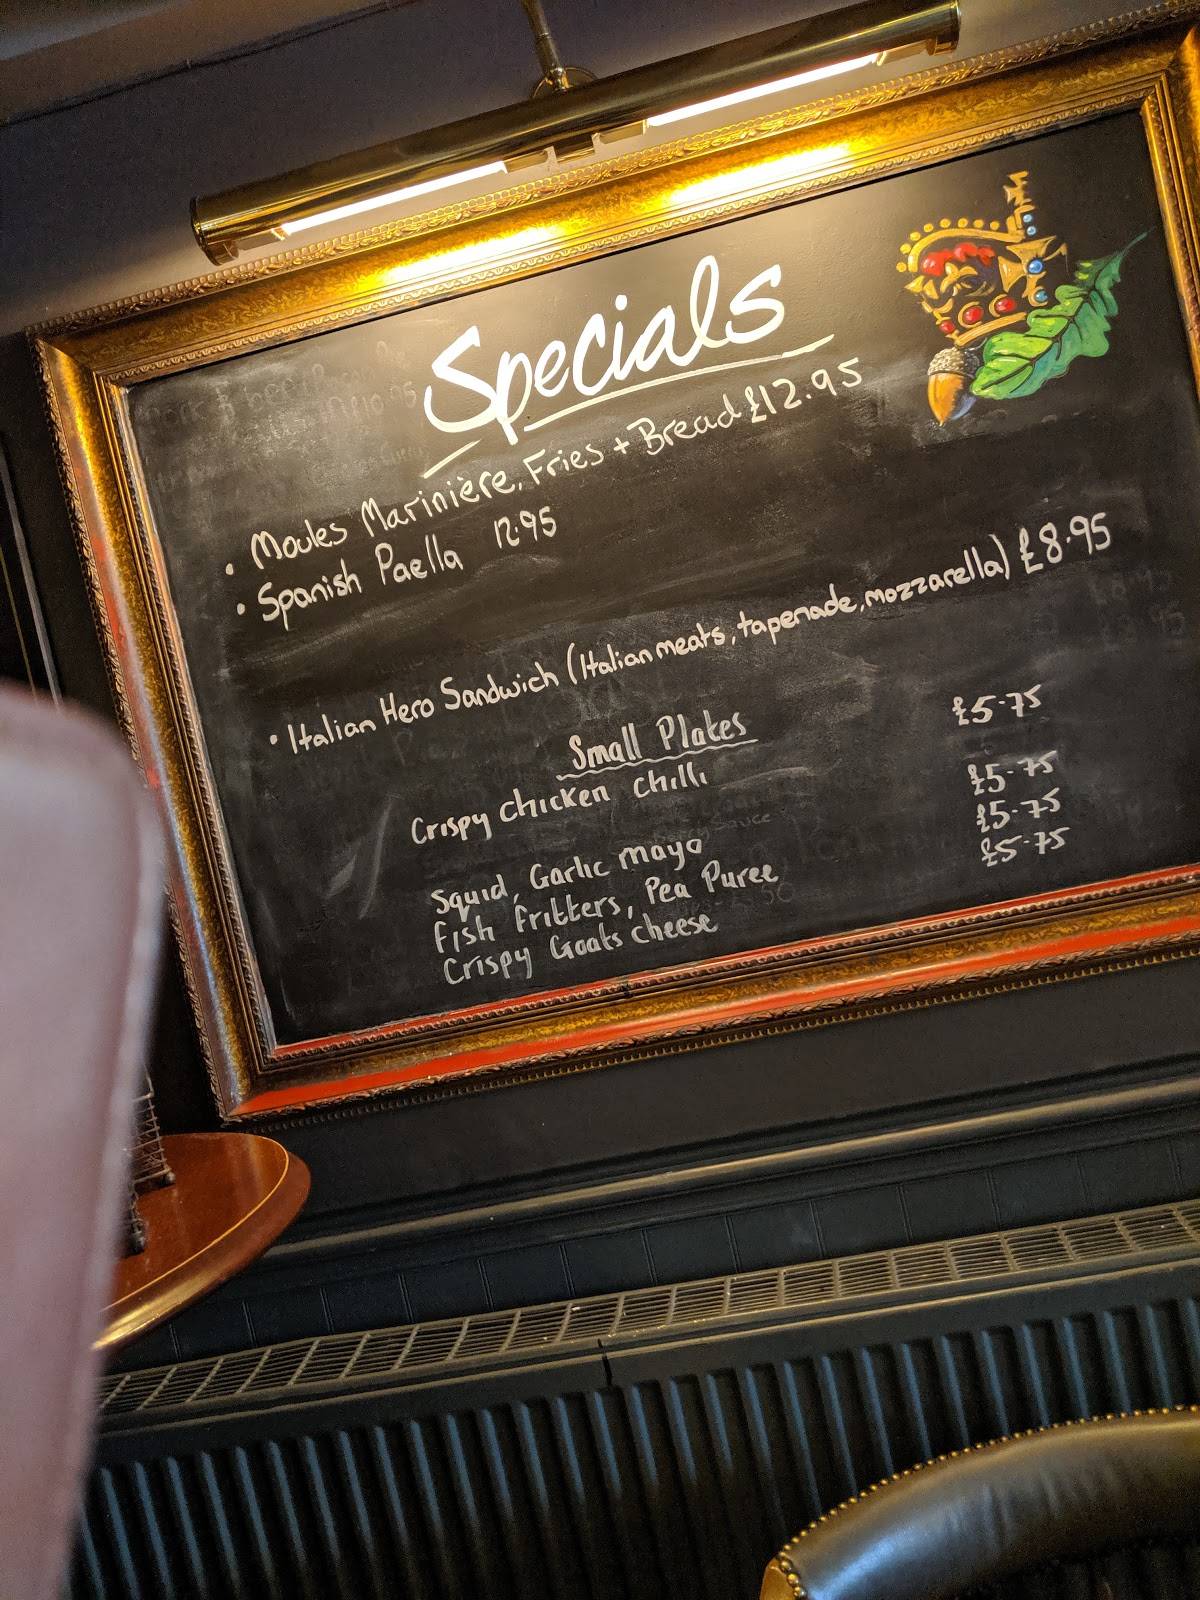 Specials
• Moules Marinière, Fries + Bread £12.95
• Spanish Paella 12.95
• Italian Hero Sandwich (Italian meats, tapenade, mozzarella) £8.95
Small Plates
Crispy Chicken Chilli £5.75
Squid, Garlic mayo £5.75
Fish Fritters, Pea Puree £5.75
Crispy Goats cheese £5.75